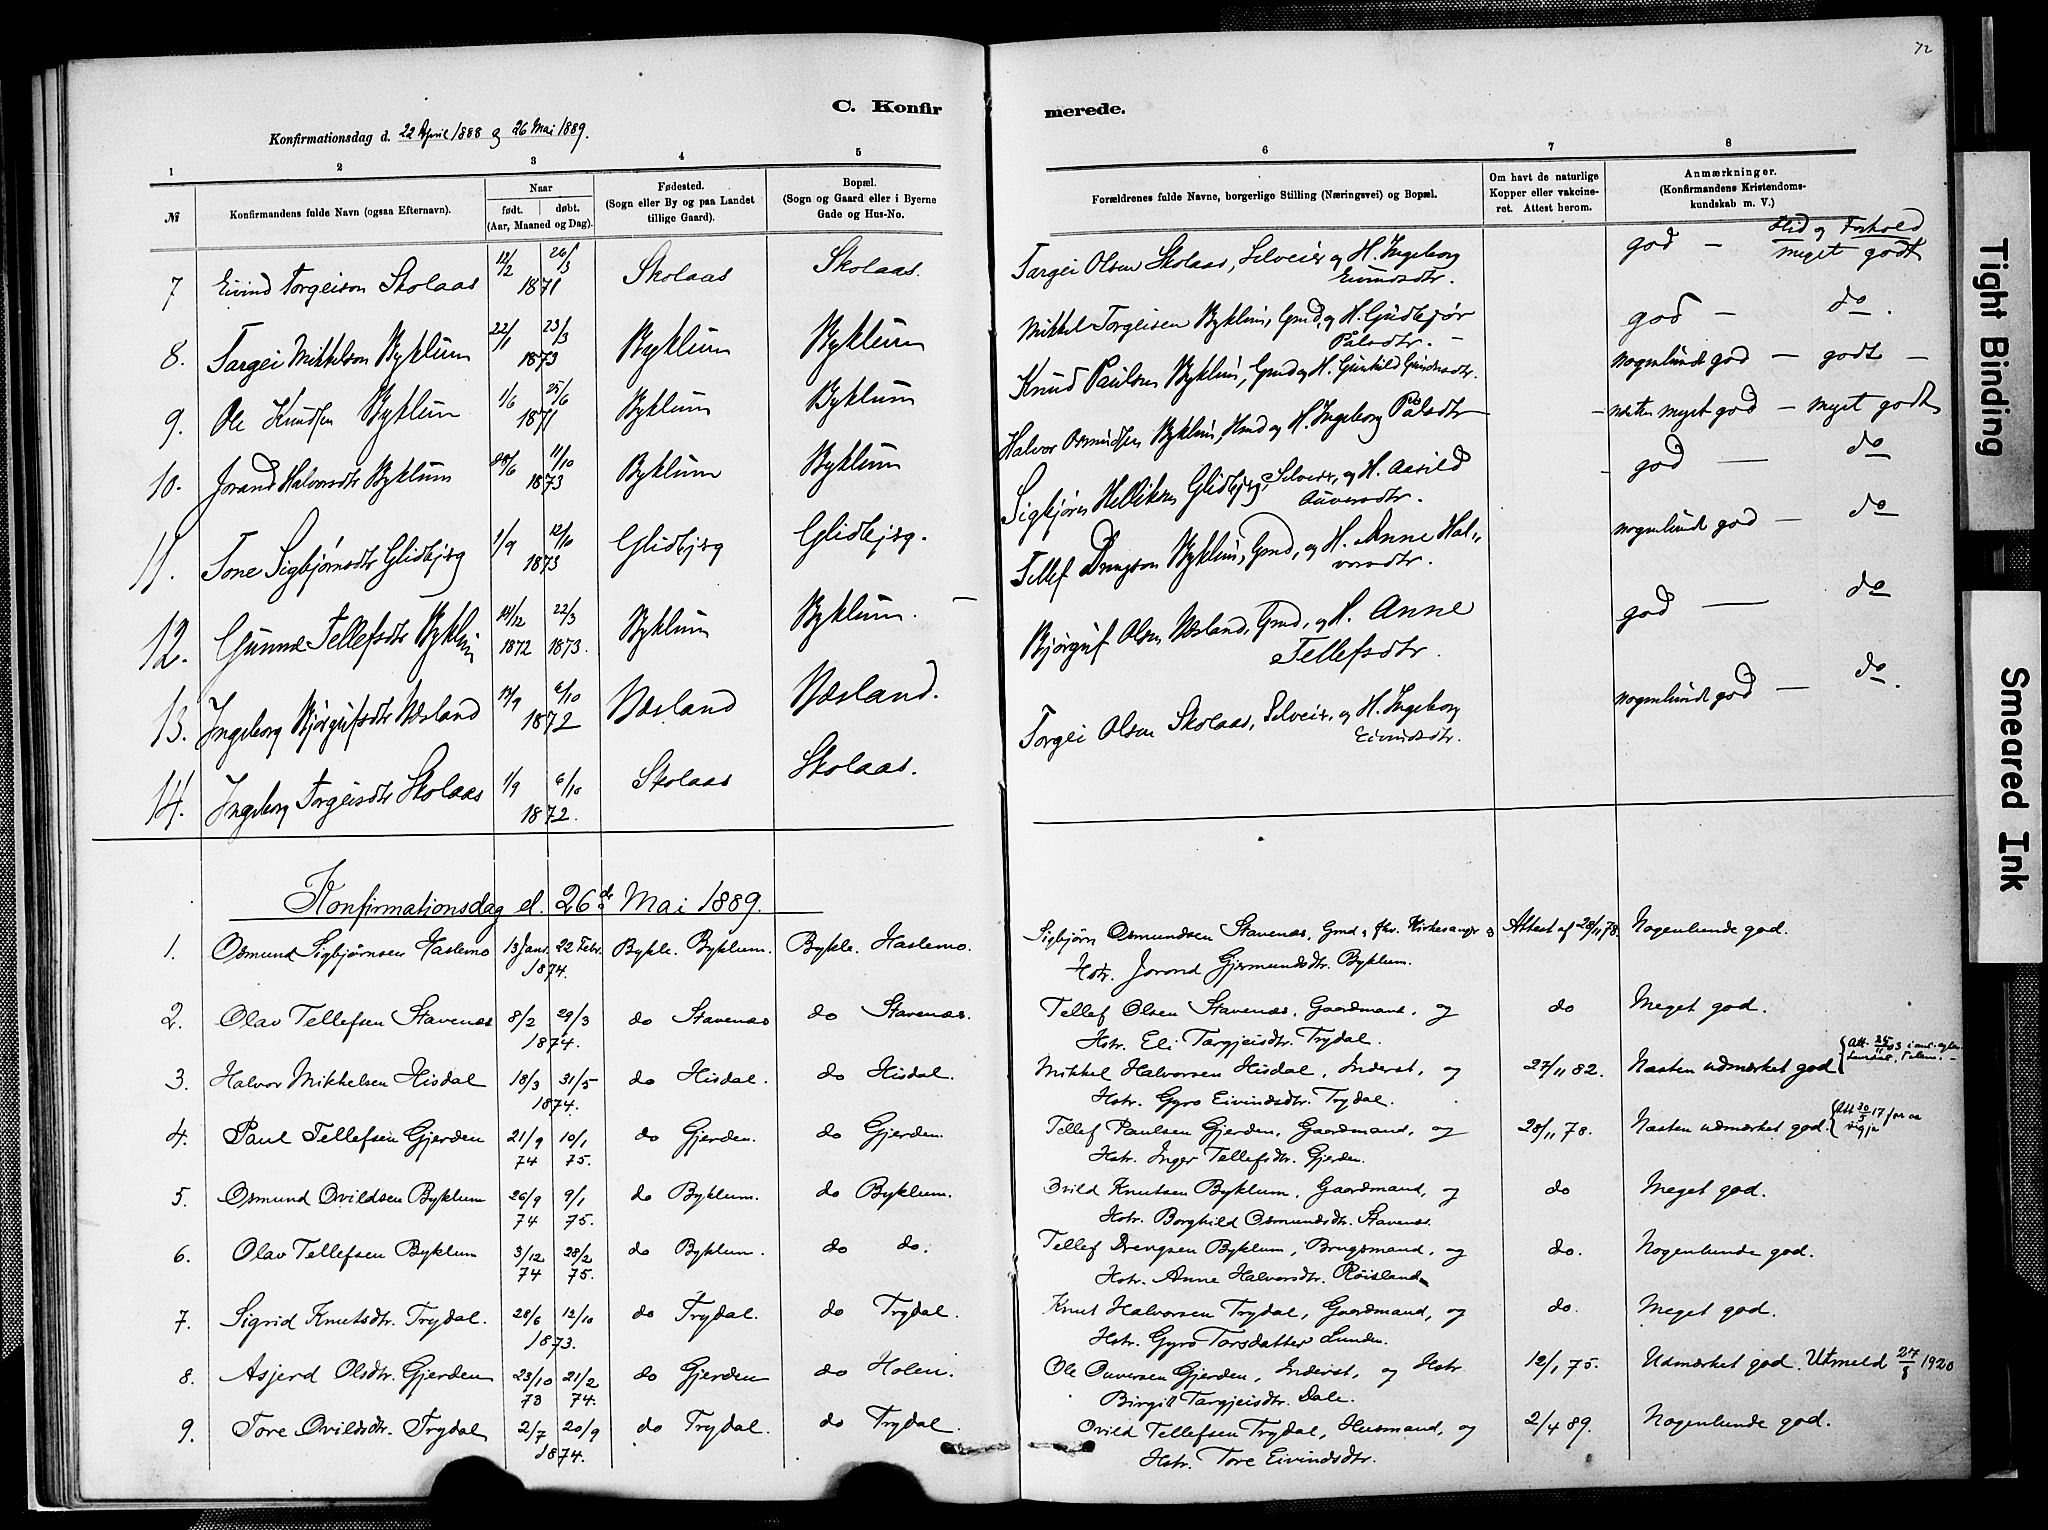 72
C. Konfirmerede.
Konfirmationsdag d. 22 April 1888 og 26 Mai 1889.
1 2 3 4 5 6 7 8
№ Konfirmandens fulde Navn (ogsaa Efternavn). Naar født. døbt. (Aar, Maaned og Dag). Fødested. (Sogn eller By og paa Landet tillige Gaard). Bopæl. (Sogn og Gaard eller i Byerne Gade og Hus-No. Forældrenes fulde Navne, borgerlige Stilling (Næringsvei) og Bopæl. Om havt de naturlige Kopper eller vakcineret. Attest herom. Anmærkninger. (Konfirmandens Kristendomskundskab m. V.)
7 Eivind Torgeison Skolaas 12/2 26/3 1871 Skolaas Skolaas. Targei Olsen Skolaas, Selveier og H. Ingeborg Eivindsdtr. god — Flid og Forhold meget godt
8. Targei Mikkelson Byklum 22/1 23/3 1873 Byklum Byklum Mikkel Torgeisen Byklum, Gmd, og H. Gudbjør Pålsdtr. — god — do.
9. Ole Knudsen Byklum 1/6 25/6 1871 Byklum Byklum Knud Paulsen Byklum, Gmd og H. Gunhild Gundersdtr. nogenlunde god — godt —
10. Jorand Halvorsdtr Byklum 11/10 1873 Byklum Byklum Halvor Osmundsen Byklum, Hmd og H. Ingeborg Pålsdtr — næsten meget god — meget godt
11. Tone Sigbjørnsdtr Glidbjerg 1/9 12/10 1873 Glidbjerg Glidbjerg. Sigbjørn Helliksen Glidbjerg, Selveier, og H. Aasild Auversdtr. - god — do
12. Gunne Tellefsdtr Byklum 14/12 1872 22/3 1873. Byklum Byklum. — Tellef Drengson Byklum, Gmd, og H. Anne Halvorsdtr. nogenlunde god — do
13. Ingeborg Bjørgufsdtr Næsland 14/9 6/10 1872 Næsland Næsland. Bjørguf Olsen Næsland, Gmd, og H. Anne Tellefsdtr. god — do
14. Ingeborg Torgeisdtr Skolaas 1/9 6/10 1872. Skolaas Skolaas. Torgei Olsen Skolaas, Selveier, og H. Ingeborg Eivindsdtr. nogenlunde god — do.
Konfirmationsdag d. 26de Mai 1889.
1. Osmund Sigbjørnsen Haslemo 13 Jan. 22 Febr. 1874. Bykle. Byklum. Bykle. Haslemo. Sigbjørn Osmundsen Stavenæs, Gmd, fhv. Kirkesanger og Attest af 28/11 78. Nogenlunde god.
Hstr. Jorond Gjermundsdtr. Byklum.
2. Olav Tellefsen Stavenæs 8/2 29/3 1874. do Stavenæs do Stavenæs. Tellef Olsen Stavenæs, Gaardmand, og do Meget god.
Hstr. Eli Targjeisdtr. Trydal.
3. Halvor Mikkelsen Hisdal 18/3 31/5 1874. do Hisdal. do Hisdal. Mikkel Halvorsen Hisdal, Inderst, og 27/11 82. Næsten udmærket god
Hstr. Gyro Eivindsdtr. Trydal.
4. Paul Tellefsen Gjerden 21/9 74 10/1 75. do Gjerden. do Gjerden. Tellef Paulsen Gjerden, Gaardmand, og 28/11 78. Næsten udmærket god.
Hstr. Inger Tellefsdtr. Gjerden.
5. Osmund Ovildsen Byklum 26/9 74 9/1 75. do Byklum. do Byklum. Ovild Knutsen Byklum, Gaardmand, og do Meget god.
Hstr. Borghild Osmundsdtr. Stavenæs.
6. Olav Tellefsen Byklum 3/12 74 28/2 75. do Byklum. do do. Tellef Drengsen Byklum, Brugsmand, og do. Nogenlunde god.
Hstr. Anne Halvorsdtr. Røisland.
7. Sigrid Knutsdtr. Trydal. 28/6 12/10 1873. do Trydal. do Trydal. Knut Halvorsen Trydal, Gaardmand, og do. Meget god.
Hstr. Gyro Torsdatter Lunden.
8. Asjerd Olsdtr. Gjerden 23/10 73 21/2 74. do Gjerden do Holen. Ole Ouversen Gjerden, Inderst, og Hstr. 12/1 75. Udmærket god. Utmeld 27/8 1920
Birgit Targjeisdtr. Dale.
9. Tore Ovildsdtr. Trydal 2/7 20/9 1874. do Trydal. do Trydal. Ovild Tellefsen Trydal, Husmand, og 2/4 89. Nogenlunde god.
Hstr. Tore Eivindsdtr.
Tight Binding
Smeared Ink